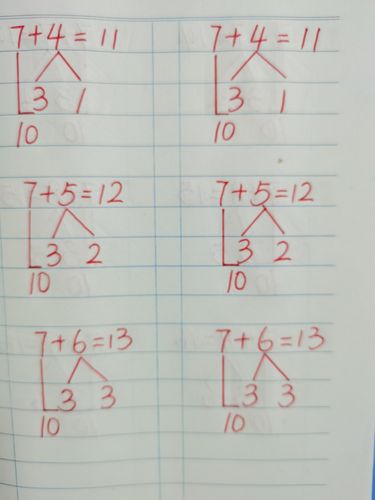 7+4=11 7+4=11
3 1 3 1
10 10
7+5=12 7+5=12
3 2 3 2
10 10
7+6=13 7+6=13
3 3 3 3
10 10